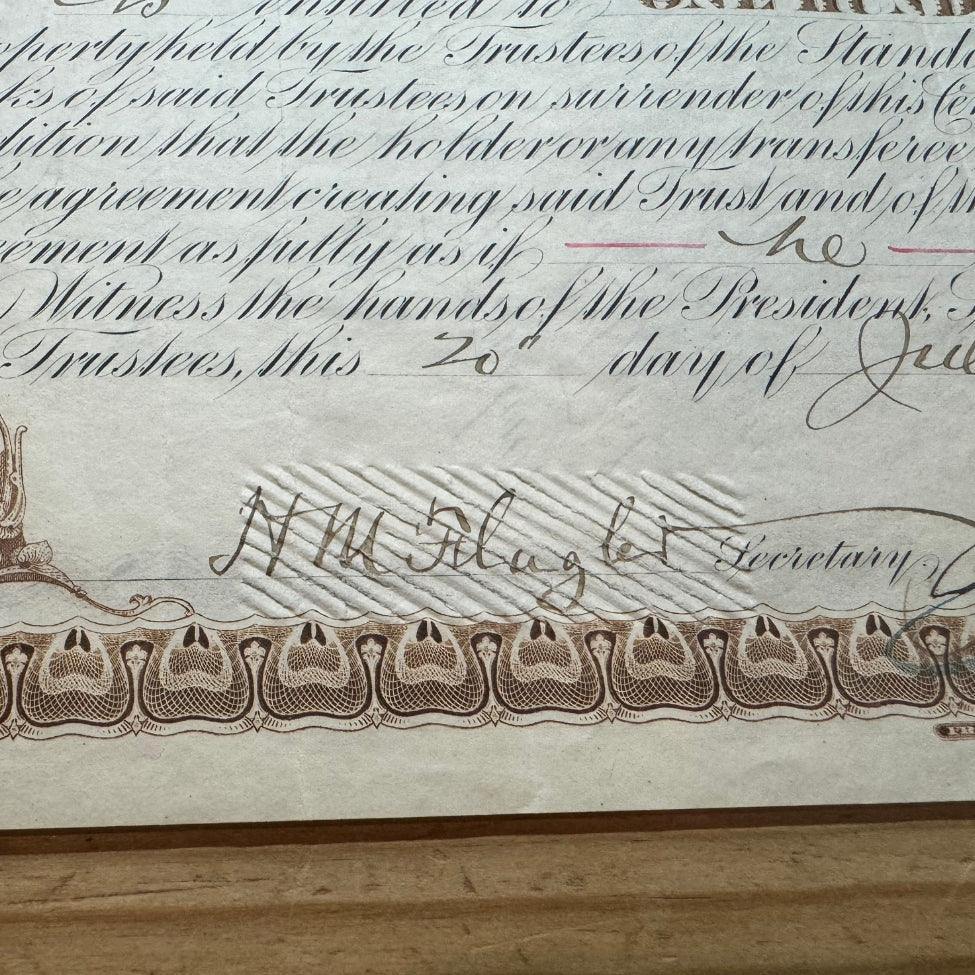 is entitled to ONE HUND
operty held by the Trustees of the Stand
ks of said Trustees on surrender of this Ce
dition that the holder or any transferee
e agreement creating said Trust and of th
eement as fully as if he
Witness the hands of the President,
Trustees, this 20" day of Jul
H M Flagler Secretary